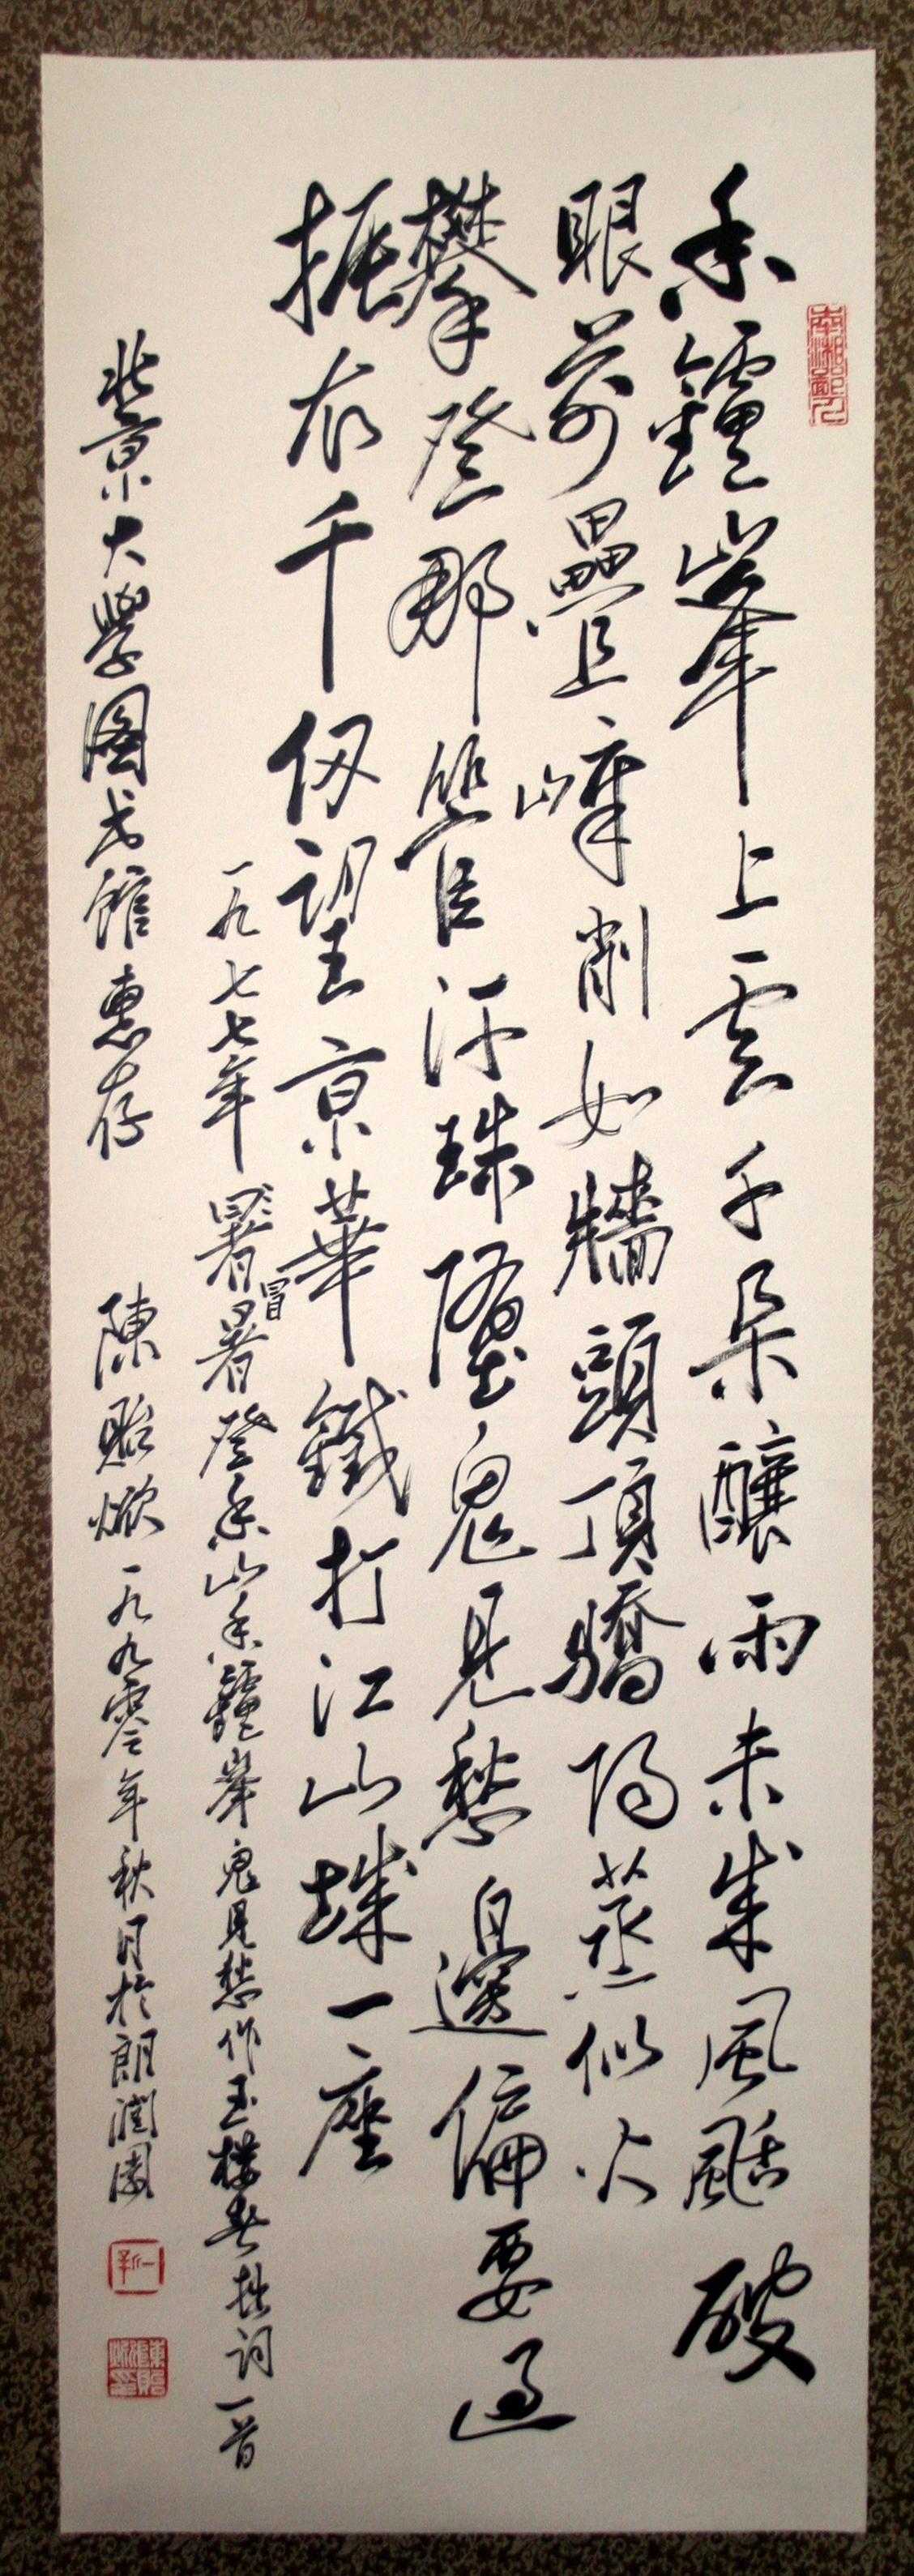 香鑪峯上雲千朵釀雨未成風颳破
眼前疊嶂削如牆頭頂驕陽蒸似火
攀登那管汗珠墮鬼見愁邊偏要過
振衣千仞望京華鐵打江山城一座
一九七七年署冒暑登香山香鑪峯鬼見愁作玉樓春拙詞一首
北京大學圖書館惠存 陳貽焮一九九零年秋日於朗潤園